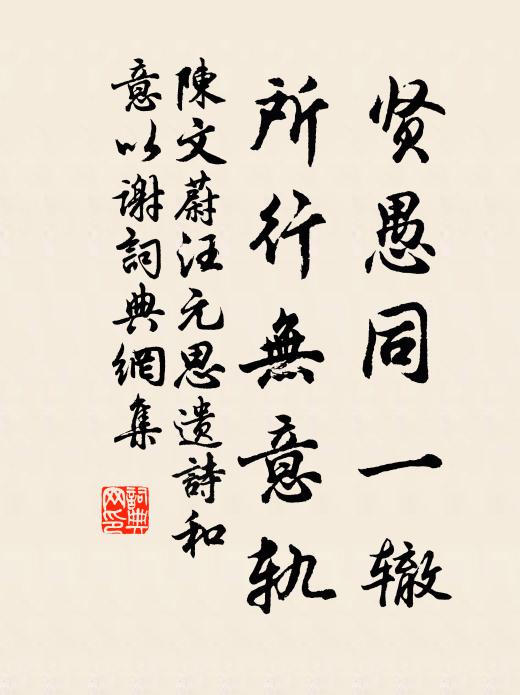 贤愚同一辙
所行無意轨
陳文蔚汪元思遗詩和
意以谢詞典網集
詞典网印